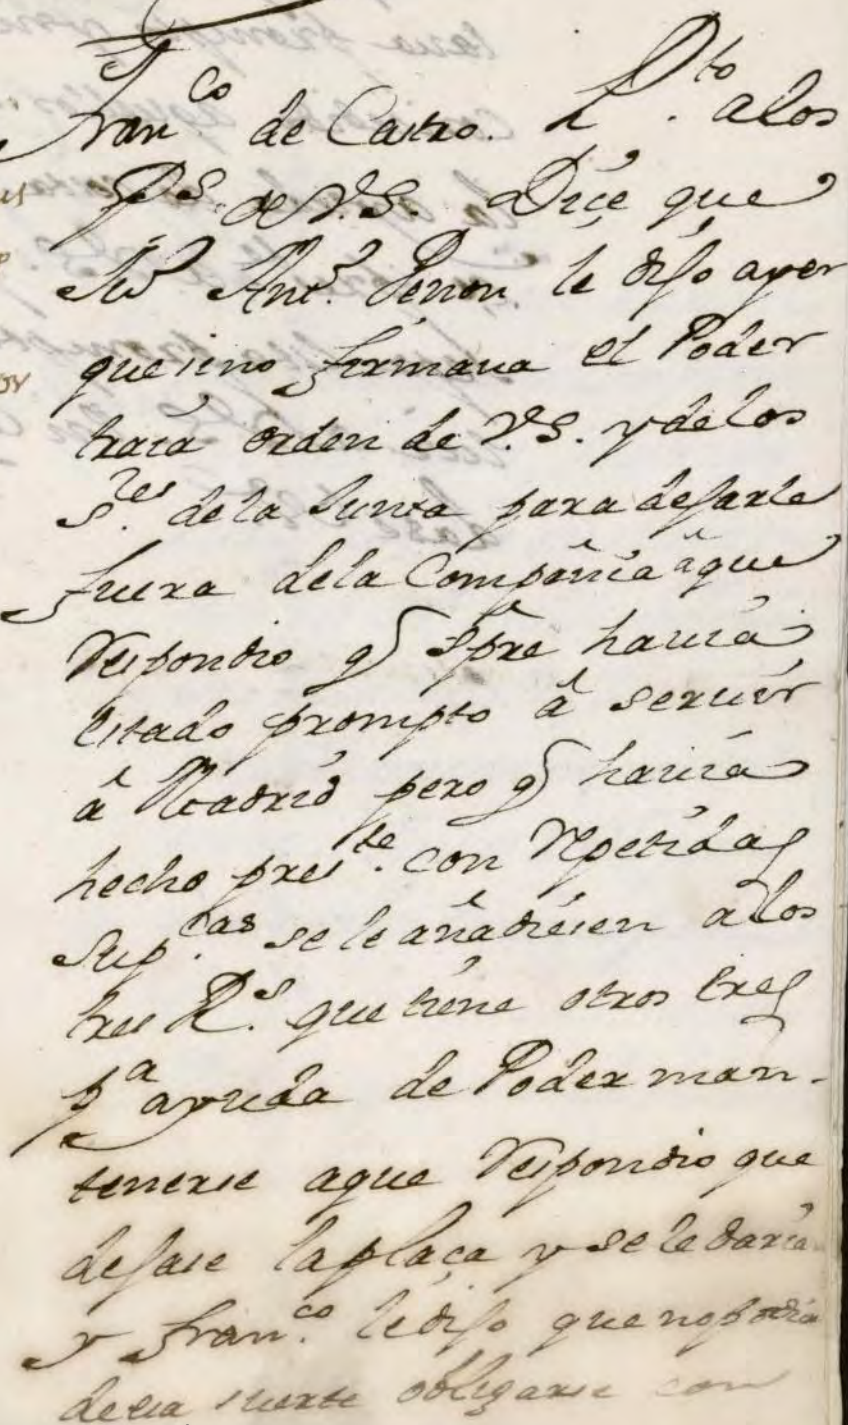 Fran.co de Castro. P.to a los
P.s de V.S. Dice que
Ju.o Ant.o Peron le dijo ayer
que si no firmava el Poder
traia orden de V.S. y de los
S.res de la Junta para dejarle
fuera de la Compañia â que
Respondio q spre havia
estado prompto â servir
â Madrid pero q havia
hecho pres.te con Repetidas
Sup.cas se le añadiesen a los
tres R.s que tiene otros tres
p.a ayuda de Poder man-
tenerse a que Respondio que
dejase la plaça y se le daria
y Fran.co le dijo que no podia
desta suerte obligarse con